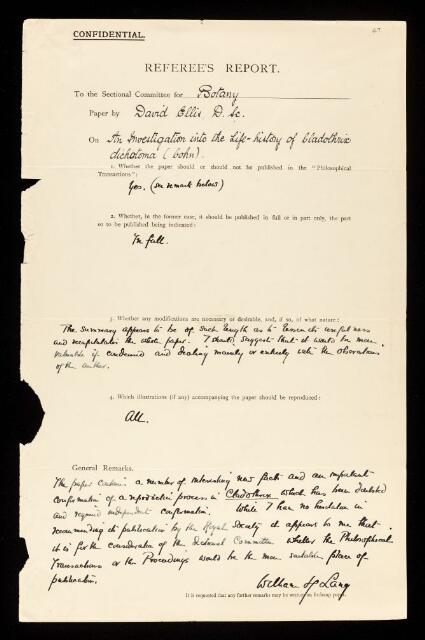 CONFIDENTIAL.
47
REFEREE'S REPORT.
To the Sectional Committee for Botany
Paper by David Ellis D. Sc.
On An Investigation into the Life-history of Cladothrix
dichotoma (Cohn).
1. Whether the paper should or should not be published in the "Philosophical
Transactions":
Yes. (see remark below)
2. Whether, in the former case, it should be published in full or in part only, the part
so to be published being indicated:
In full.
3. Whether any modifications are necessary or desirable, and, if so, of what nature:
The summary appears to be of such length as to lessen its usefulness
and recapitulates the whole paper. I should suggest that it would be more
valuable if condensed and dealing mainly or entirely with the observations
of the author.
4. Which illustrations (if any) accompanying the paper should be reproduced:
All.
General Remarks.
The paper contains a number of interesting new facts and an important
confirmation of a reproductive process in Cladothrix which has been doubted
and required independent confirmation. While I have no hesitation in
recommending its publication by the Royal Society it appears to me that
it is for the consideration of the Sectional Committee whether the Philosophical
Transactions or the Proceedings would be the more suitable place of
publication.
William H Lang
It is requested that any further remarks may be written on foolscap paper.